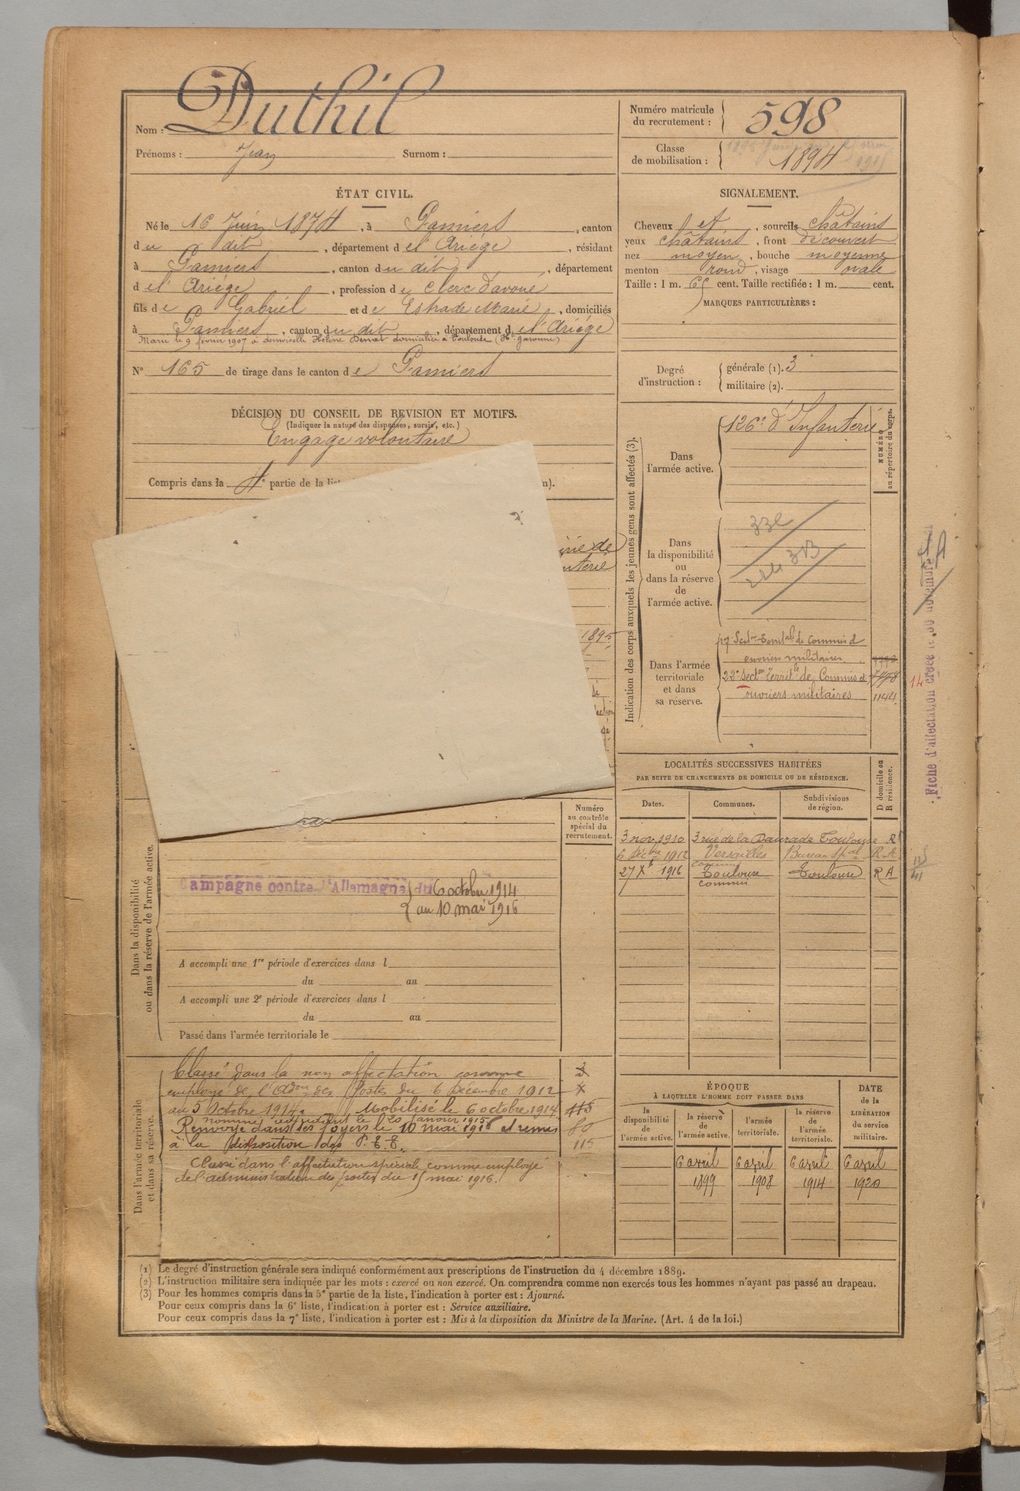 Nom : Duthil
Prénoms : Jean Surnom :
Numéro matricule du recrutement : 598
Classe de mobilisation : 1894
ÉTAT CIVIL.
Né le 16 Juin 1874, à Pamiers, canton
du dit, département de l'Ariège, résidant
à Pamiers, canton du dit, département
de l'Ariège, profession de clerc d'avoué
fils de Gabriel et de Estrade Marie, domiciliés
à Pamiers, canton du dit, département de l'Ariège
Marié le 9 février 1907 à demoiselle Hélène domicilié à Toulouse (Hte Garonne)
N° 165 de tirage dans le canton de Pamiers
SIGNALEMENT.
Cheveux et, sourcils châtains
yeux châtains, front découvert
nez moyen, bouche moyenne
menton rond, visage ovale
Taille : 1 m. 65 cent. Taille rectifiée : 1 m. cent.
MARQUES PARTICULIÈRES :
Degré d'instruction : générale (1). 3
militaire (2).
DÉCISION DU CONSEIL DE REVISION ET MOTIFS.
(Indiquer la nature des dispenses, sursis, etc.)
Engagé volontaire
Compris dans la 4e partie de la
Indication des corps auxquels les jeunes gens sont affectés (3).
NUMÉRO au répertoire du corps.
Dans l'armée active.
126e d'Infanterie
Dans la disponibilité ou dans la réserve de l'armée active.
Dans l'armée territoriale et dans sa réserve.
17 Sect. Territ de Commis et
ouvriers militaires
22e Section Territle de Commis et
ouvriers militaires
1895
Fiche d'affectation créée le 30 novembre
14
LOCALITÉS SUCCESSIVES HABITÉES
PAR SUITE DE CHANGEMENTS DE DOMICILE OU DE RÉSIDENCE.
Dates. Communes. Subdivisions de région. D domicile ou R résidence.
3 nov. 1910 3 rue de la Daurade Toulouse R
6 Xbre 1912 Versailles Bureau R A
27 Xe 1916 Toulouse Toulouse R A
Numéro au contrôle spécial du recrutement.
Dans la disponibilité ou dans la réserve de l'armée active.
Campagne contre l'Allemagne du 6 octobre 1914
au 10 mai 1916
A accompli une 1re période d'exercices dans l
du au
A accompli une 2e période d'exercices dans l
du au
Passé dans l'armée territoriale le
Dans l'armée territoriale et dans sa réserve.
Classé dans la non affectation comme
employé de l'Adm des Postes du 6 Décembre 1912
au 5 Octobre 1914. Mobilisé le 6 octobre 1914
le 20 janvier 1915
Renvoyé dans ses foyers le 10 mai 1916 et remis
à la disposition des P.T.T.
Classé dans l'affectation spéciale comme employé
de l'administration des postes du 15 mai 1916.
115
80
115
ÉPOQUE
À LAQUELLE L'HOMME DOIT PASSER DANS
la disponibilité de l'armée active. la réserve de l'armée active. l'armée territoriale. la réserve de l'armée territoriale.
DATE de la LIBÉRATION du service militaire.
6 avril 6 avril 6 avril 6 avril
1899 1908 1914 1920
(1) Le degré d'instruction générale sera indiqué conformément aux prescriptions de l'instruction du 4 décembre 1889.
(2) L'instruction militaire sera indiquée par les mots : exercé ou non exercé. On comprendra comme non exercés tous les hommes n'ayant pas passé au drapeau.
(3) Pour les hommes compris dans la 5e partie de la liste, l'indication à porter est : Ajourné.
Pour ceux compris dans la 6e liste, l'indication à porter est : Service auxiliaire.
Pour ceux compris dans la 7e liste, l'indication à porter est : Mis à la disposition du Ministre de la Marine. (Art. 4 de la loi.)